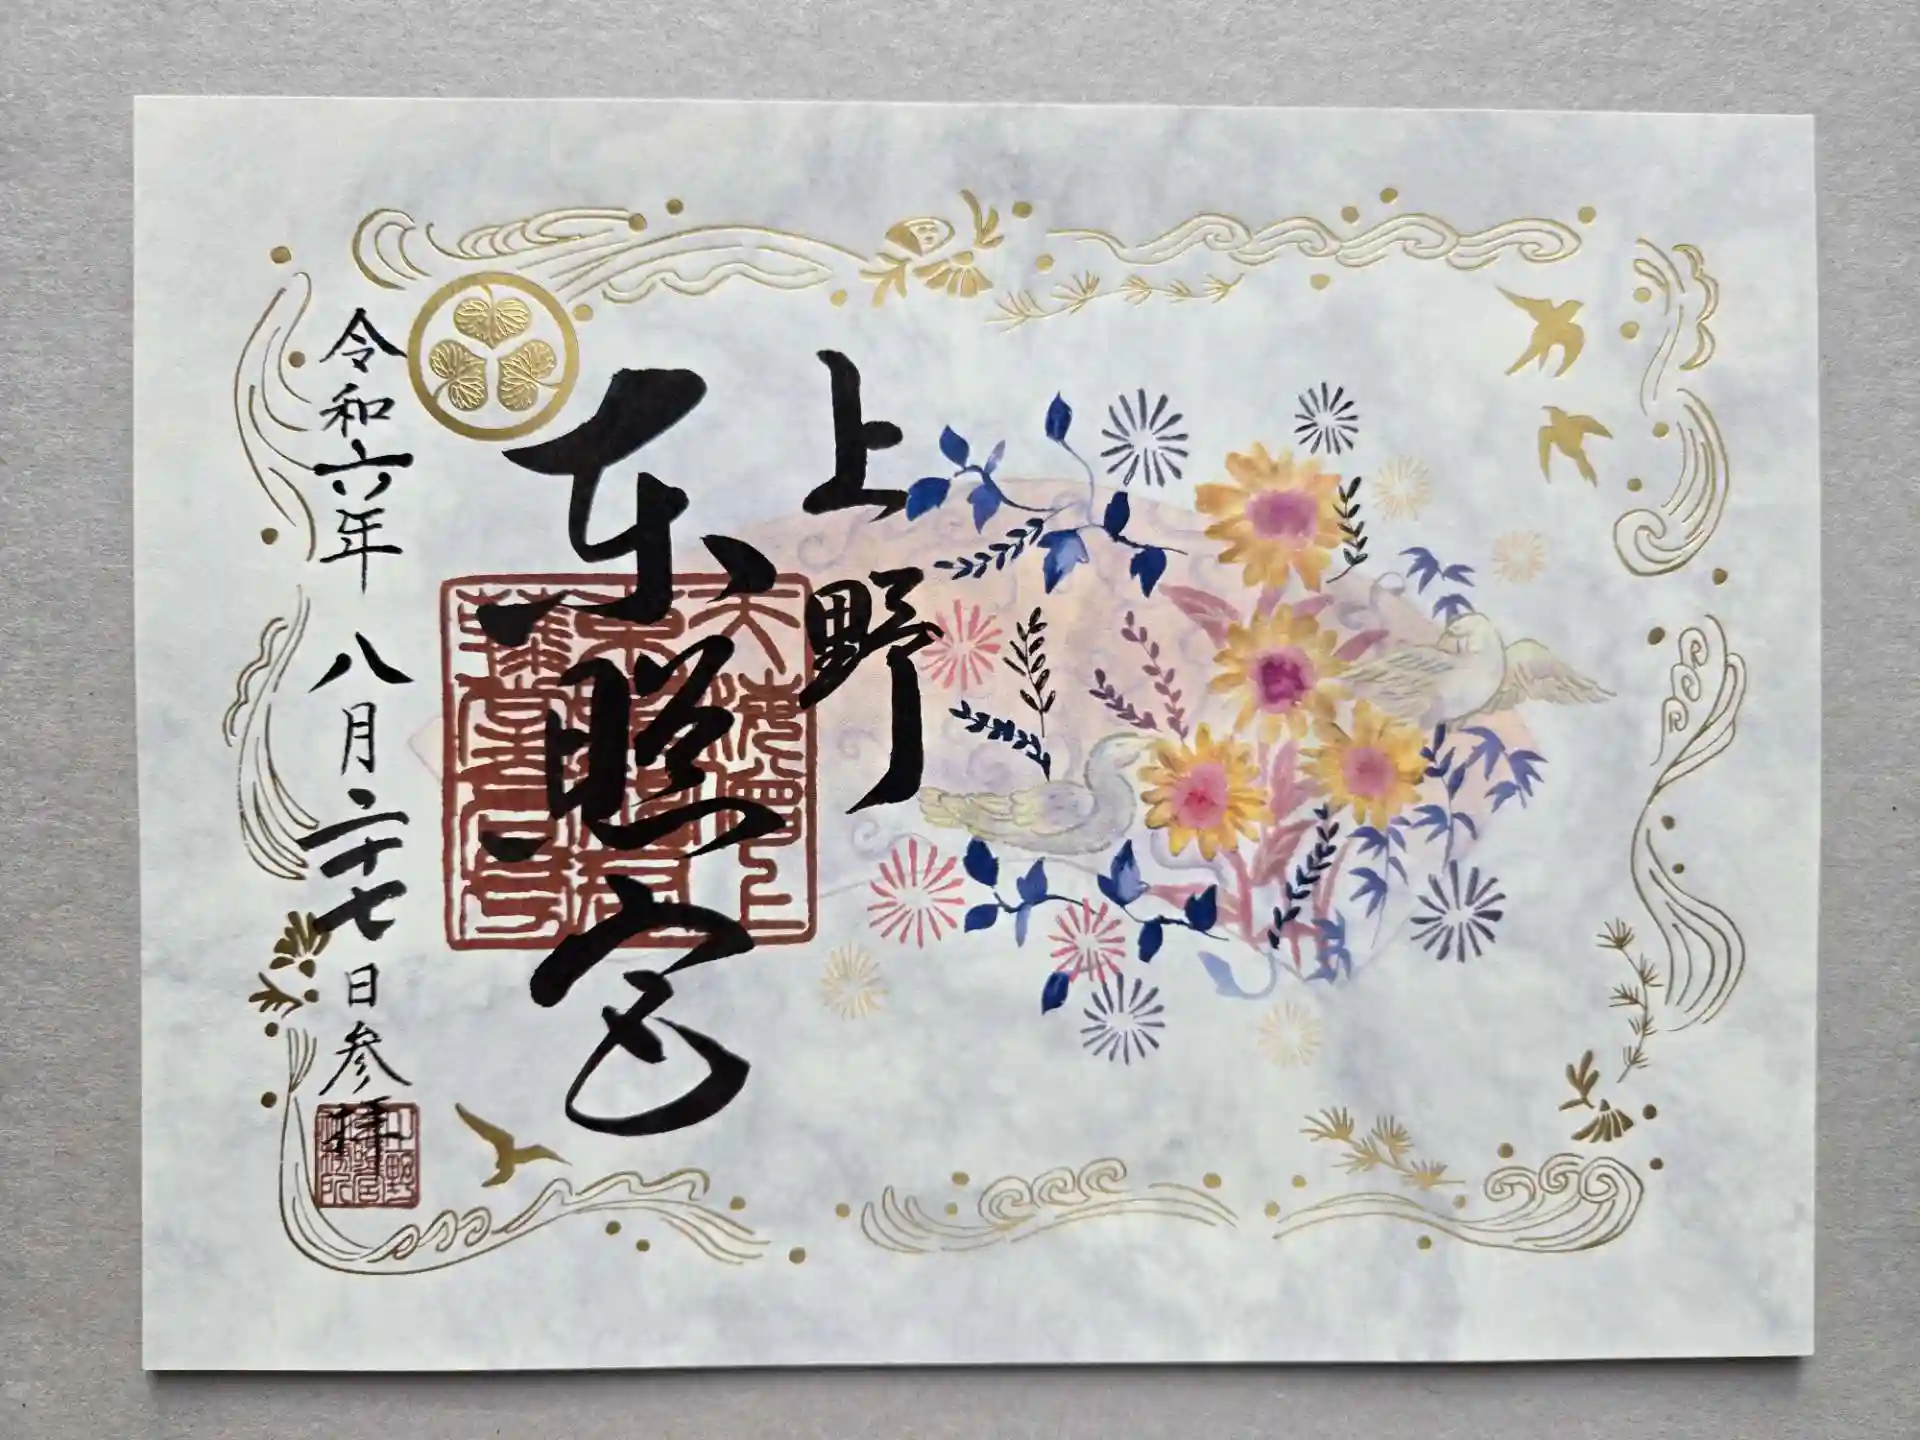 上野
東照宮
令和六年 八月二十七日参拝